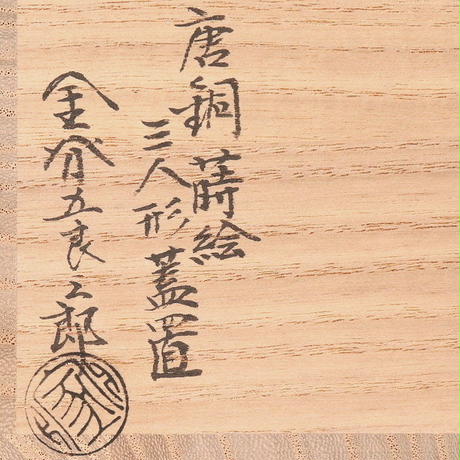 唐銅蒔絵
三人形蓋置
金谷五良三郎